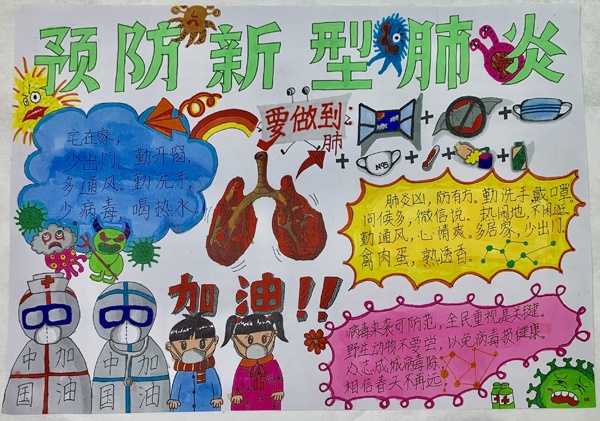 预防新型肺炎
要做到:
肺
N95
宅在家,
少出门。勤开窗,
多通风。勤洗手,
少病毒。喝热水。
肺炎凶,防有方。勤洗手,戴口罩,
问候多,微信说。热闹地,不闲逛。
勤通风,心情爽。多居家,少出门,
禽肉蛋,熟透香。
加油!!
中国
加油
中国
加油
病毒来袭可防范,全民重视是关键。
野生动物不要尝,以免病毒损健康。
众志成城病毒除,
相信春天不再远。